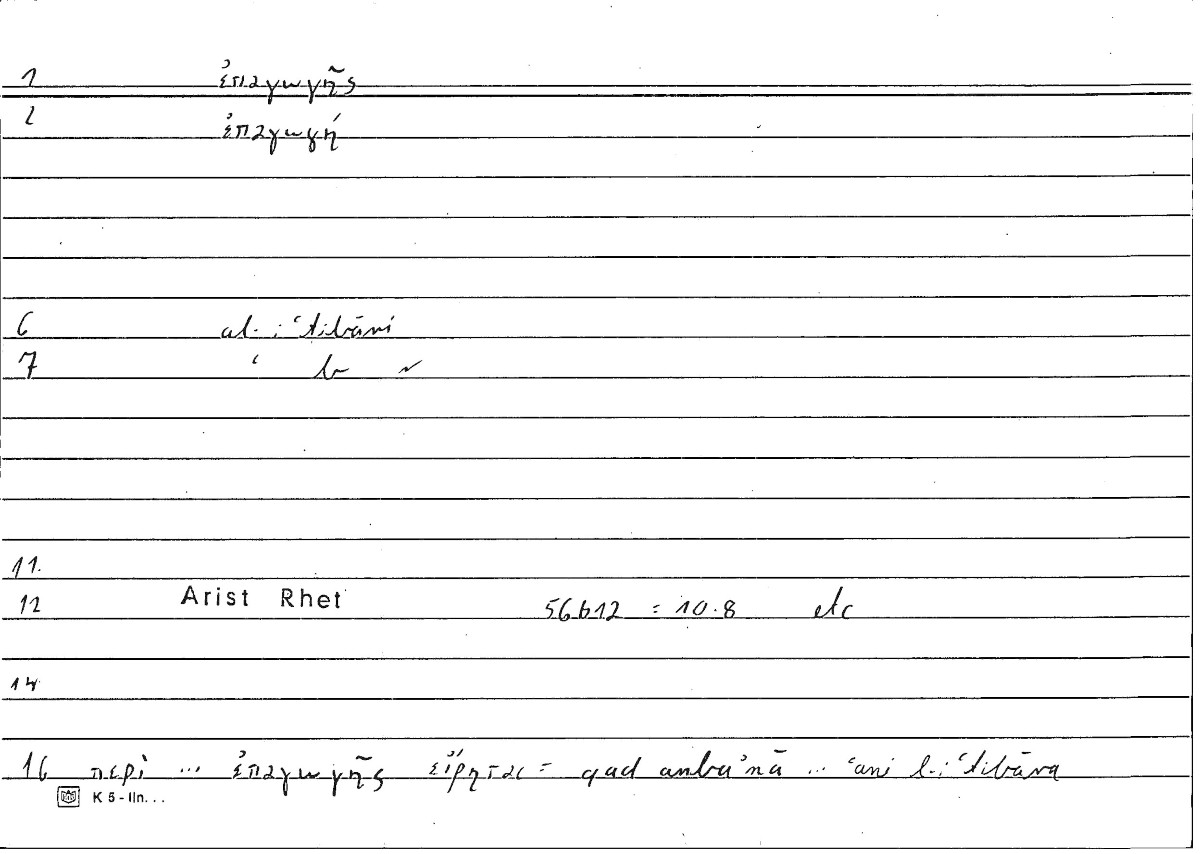 1 ἐπαγωγῆς
2 ἐπαγωγή
6 al-iʿtibāri
7 ʿ b r
11.
12 Arist Rhet 56b12 = 10.8 etc
14
16 περὶ ... ἐπαγωγῆς εἴρηται = qad anbaʾnā ... ʿani l-iʿtibāra
K 5 - lln. . .